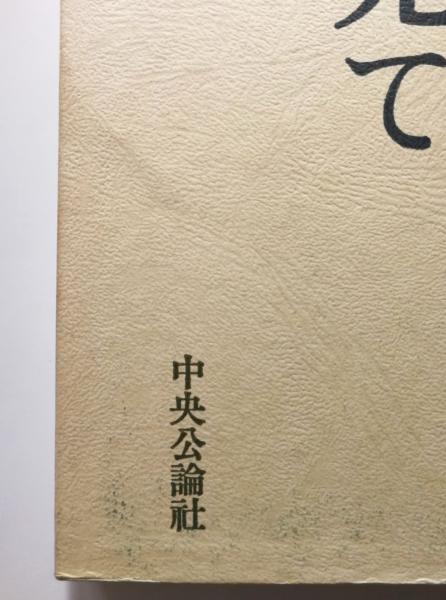 て
中央公論社